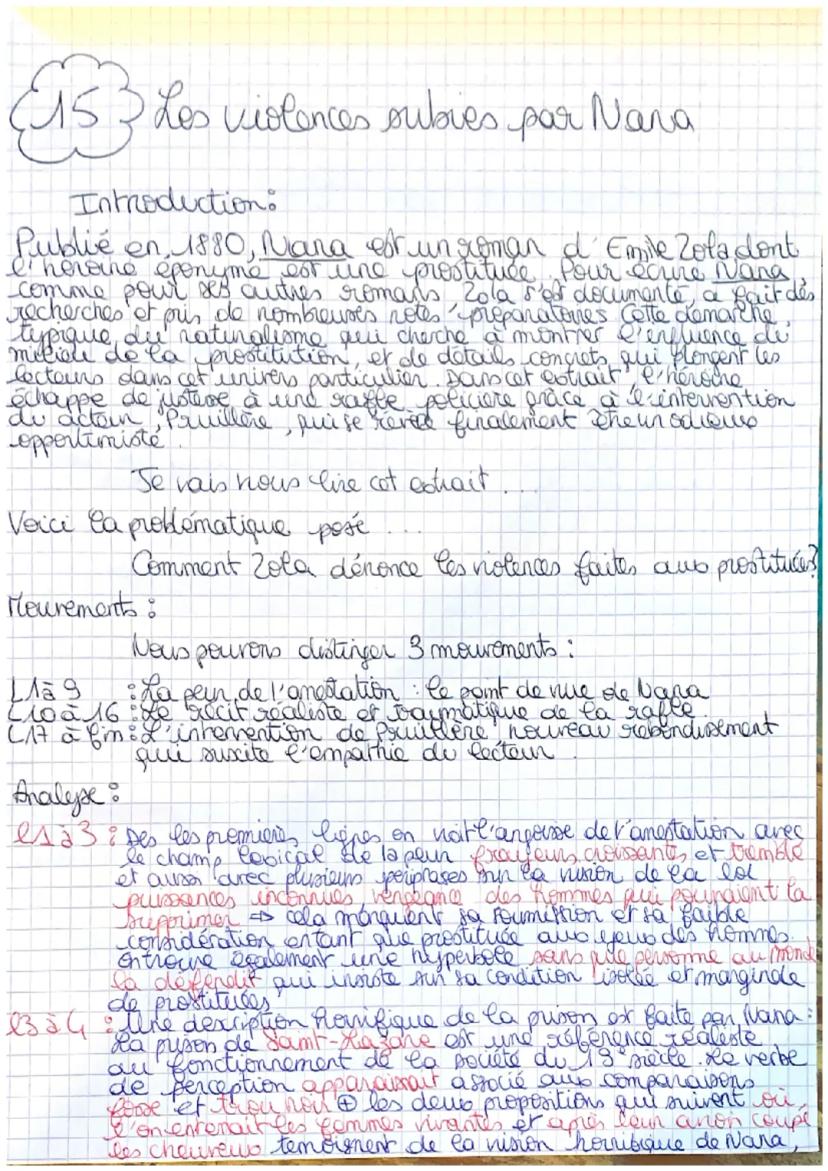 15 Les violences subies par Nana
Introduction:
Publié en 1880, Nana est un roman d'Emile Zola dont
l'héroïne éponyme est une prostituée. Pour écrire Nana,
comme pour ses autres romans Zola s'est documenté, a fait des
recherches et pris de nombreuses notes préparatoires cette démarche
typique du naturalisme qui cherche à montrer l'influence du
milieu de la prostitution, et de détails concrets qui plongent les
lecteurs dans cet univers particulier. Dans cet extrait, l'héroïne
échappe de justesse à une rafle policière grâce à l'intervention
du acteur, Prullière, qui se révèle finalement être un odieux
opportuniste.
Je vais nous lire cet extrait ...
Voici la problématique posé ...
Comment Zola dénonce les violences faites aux prostituées?
Mouvements :
Nous pouvons distinger 3 mouvements :
L1 à 9 : La peur de l'arrestation : le point de vue de Nana
L10 à 16 : Le récit réaliste et traumatique de la rafle
L17 à fin : L'intervention de Prullière nouveau rebondissement
qui suscite l'empathie du lecteur.
Analyse :
l1 à 3 : Dès les premières lignes on voit l'angoisse de l'arrestation avec
le champ lexical de la peur frayeurs, croissante, et tremblé
et aussi avec plusieurs périphrases sur la vision de la loi
puissances inconnues, vengeance des hommes qui pouvaient la
supprimer ⇒ cela marquent sa soumission et sa faible
considération entant que prostituée aux yeux des hommes.
On trouve également une hyperbole sans que personne au monde
la défendit qui insiste sur sa condition isolée et marginale
de prostituées
l3 à 4 : Une description horrifique de la prison est faite par Nana :
La prison de Saint-Lazare est une référence réaliste
au fonctionnement de la société du 19e siècle. Le verbe
de perception apparaissait associé aux comparaisons
fosse et trou noir ⊕ les deux propositions qui suivent où
l'on enterrait les femmes vivantes et après leur avoir coupé
les cheveux temoignent de la vision horrifique de Nana,